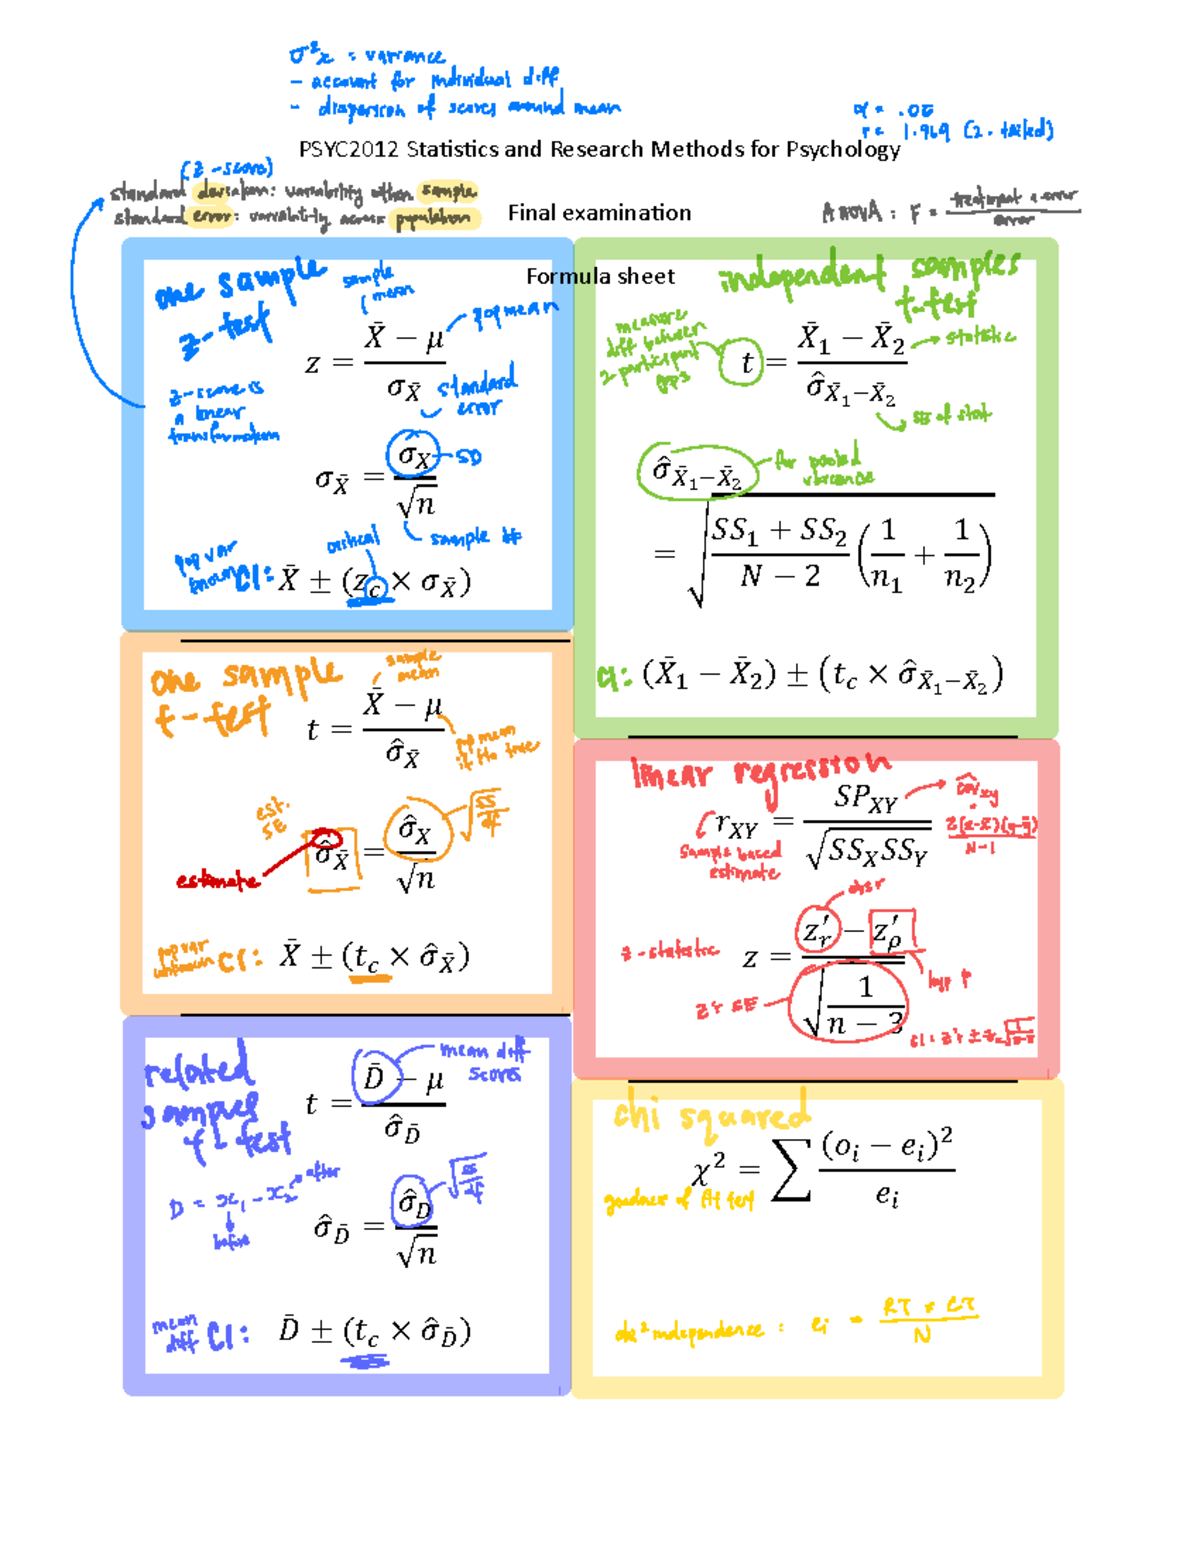 σ²x : variance
- account for individual diff
- dispersion of scores around mean
α = .05
r = 1.969 (2-tailed)
PSYC2012 Statistics and Research Methods for Psychology
(z-score)
standard deviation: variability within sample
standard error: variability across population
Final examination
ANOVA : F = treatment + error / error
Formula sheet
one sample z-test
sample mean
z = (X̄ − μ) / σ_X̄
pop mean
standard error
z-score is a linear transformation
σ_X̄ = σ_X / √n
SD
sample
critical
pop var known CI: X̄ ± (z_c × σ_X̄)
independent samples t-test
measure diff between 2 participant grps
t = (X̄₁ − X̄₂) / σ̂_X̄₁−X̄₂
statistic
SE of stat
σ̂_X̄₁−X̄₂
for pooled variance
= √((SS₁ + SS₂) / (N − 2) (1/n₁ + 1/n₂))
CI: (X̄₁ − X̄₂) ± (t_c × σ̂_X̄₁−X̄₂)
one sample t-test
sample mean
t = (X̄ − μ) / σ̂_X̄
pop mean if Ho true
est. SE
σ̂_X̄ = σ̂_X / √n
√(SS/df)
estimate
pop var unknown CI: X̄ ± (t_c × σ̂_X̄)
linear regression
r_XY = SP_XY / √(SS_X SS_Y)
cov̂xy
Σ(x-x̄)(y-ȳ) / N-1
sample based estimate
z-statistic
z = (z′_r − z′_ρ) / √(1 / (n − 3))
zr SE
related samples t-test
t = (D̄ − μ) / σ̂_D̄
mean diff scores
D = x₁ - x₂
after
before
σ̂_D̄ = σ̂_D / √n
√(SS/df)
mean diff CI: D̄ ± (t_c × σ̂_D̄)
chi squared
χ² = ∑ (o_i − e_i)² / e_i
goodness of fit test
independence : ei = RT × CT / N